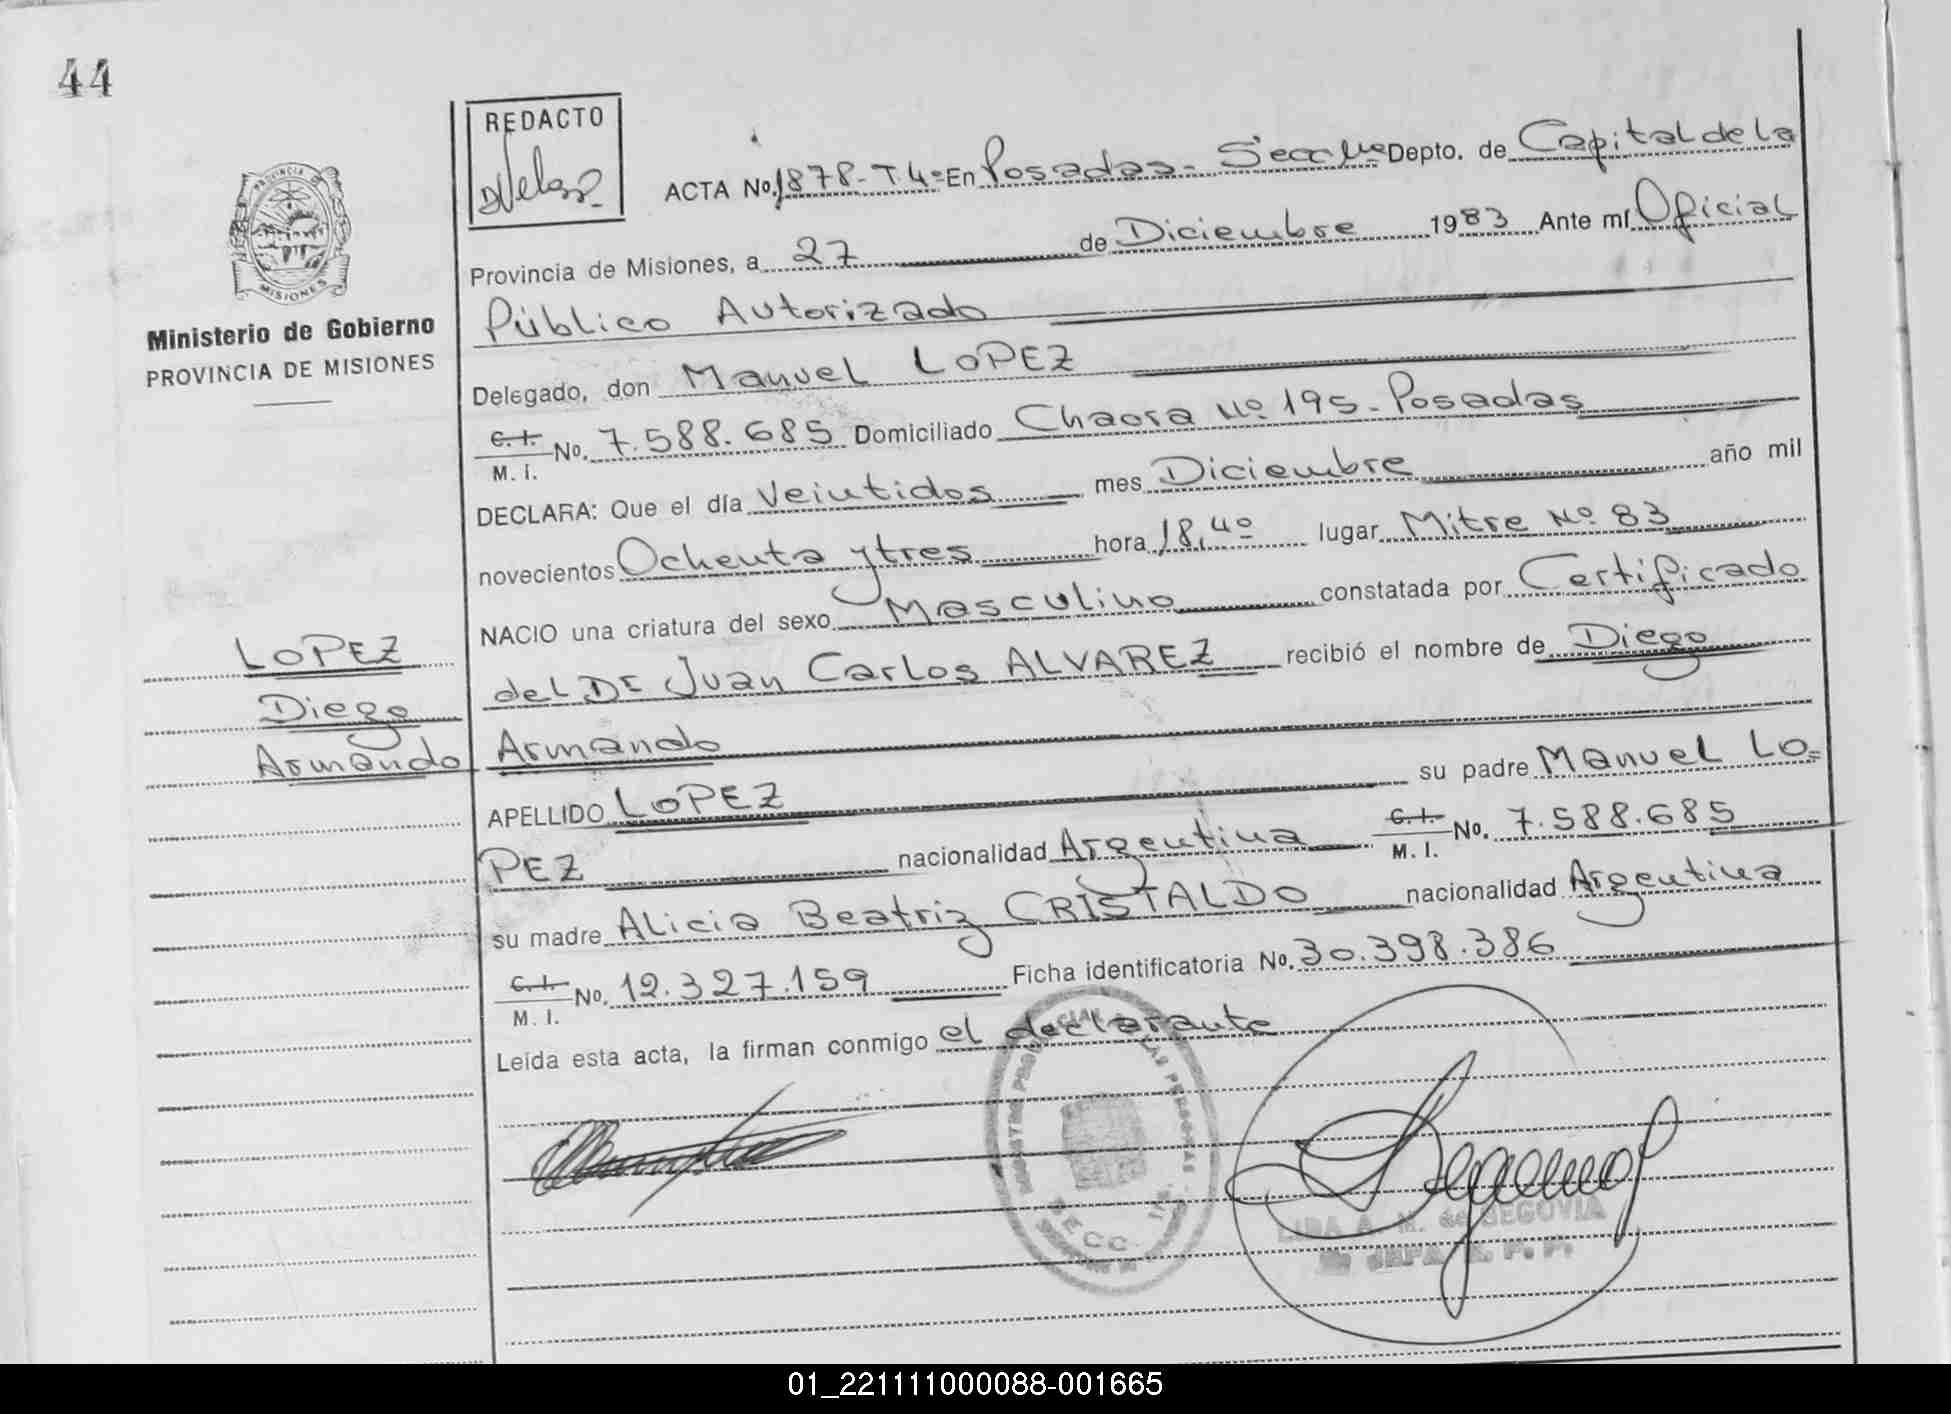 44
REDACTO
ACTA No. 1878-T.4º En Posadas- Secc 1ra Depto. de Capital de la
Provincia de Misiones, a 27 de Diciembre 1983 Ante mí Oficial
Público Autorizado
Delegado, don Manuel LOPEZ
C. I.
M. I. No. 7.588.685 Domiciliado Chacra Nº 195- Posadas
DECLARA: Que el día Veintidos mes Diciembre año mil
novecientos Ochenta y tres hora 18,40 lugar Mitre Nº 83
NACIO una criatura del sexo Masculino constatada por Certificado
del Dr Juan Carlos ALVAREZ recibió el nombre de Diego
Armando
APELLIDO LOPEZ su padre Manuel LO=
PEZ nacionalidad Argentina C. I. M. I. No. 7.588.685
su madre Alicia Beatriz CRISTALDO nacionalidad Argentina
C. I.
M. I. No. 12.327.159 Ficha identificatoria No. 30.398.386
Leída esta acta, la firman conmigo el declarante
PROVINCIA DE
MISIONES
Ministerio de Gobierno
PROVINCIA DE MISIONES
LOPEZ
Diego
Armando
REGISTRO PROVINCIAL LAS PERSONAS
SECC.
A. M. de SEGOVIA
JEFA
01_221111000088-001665